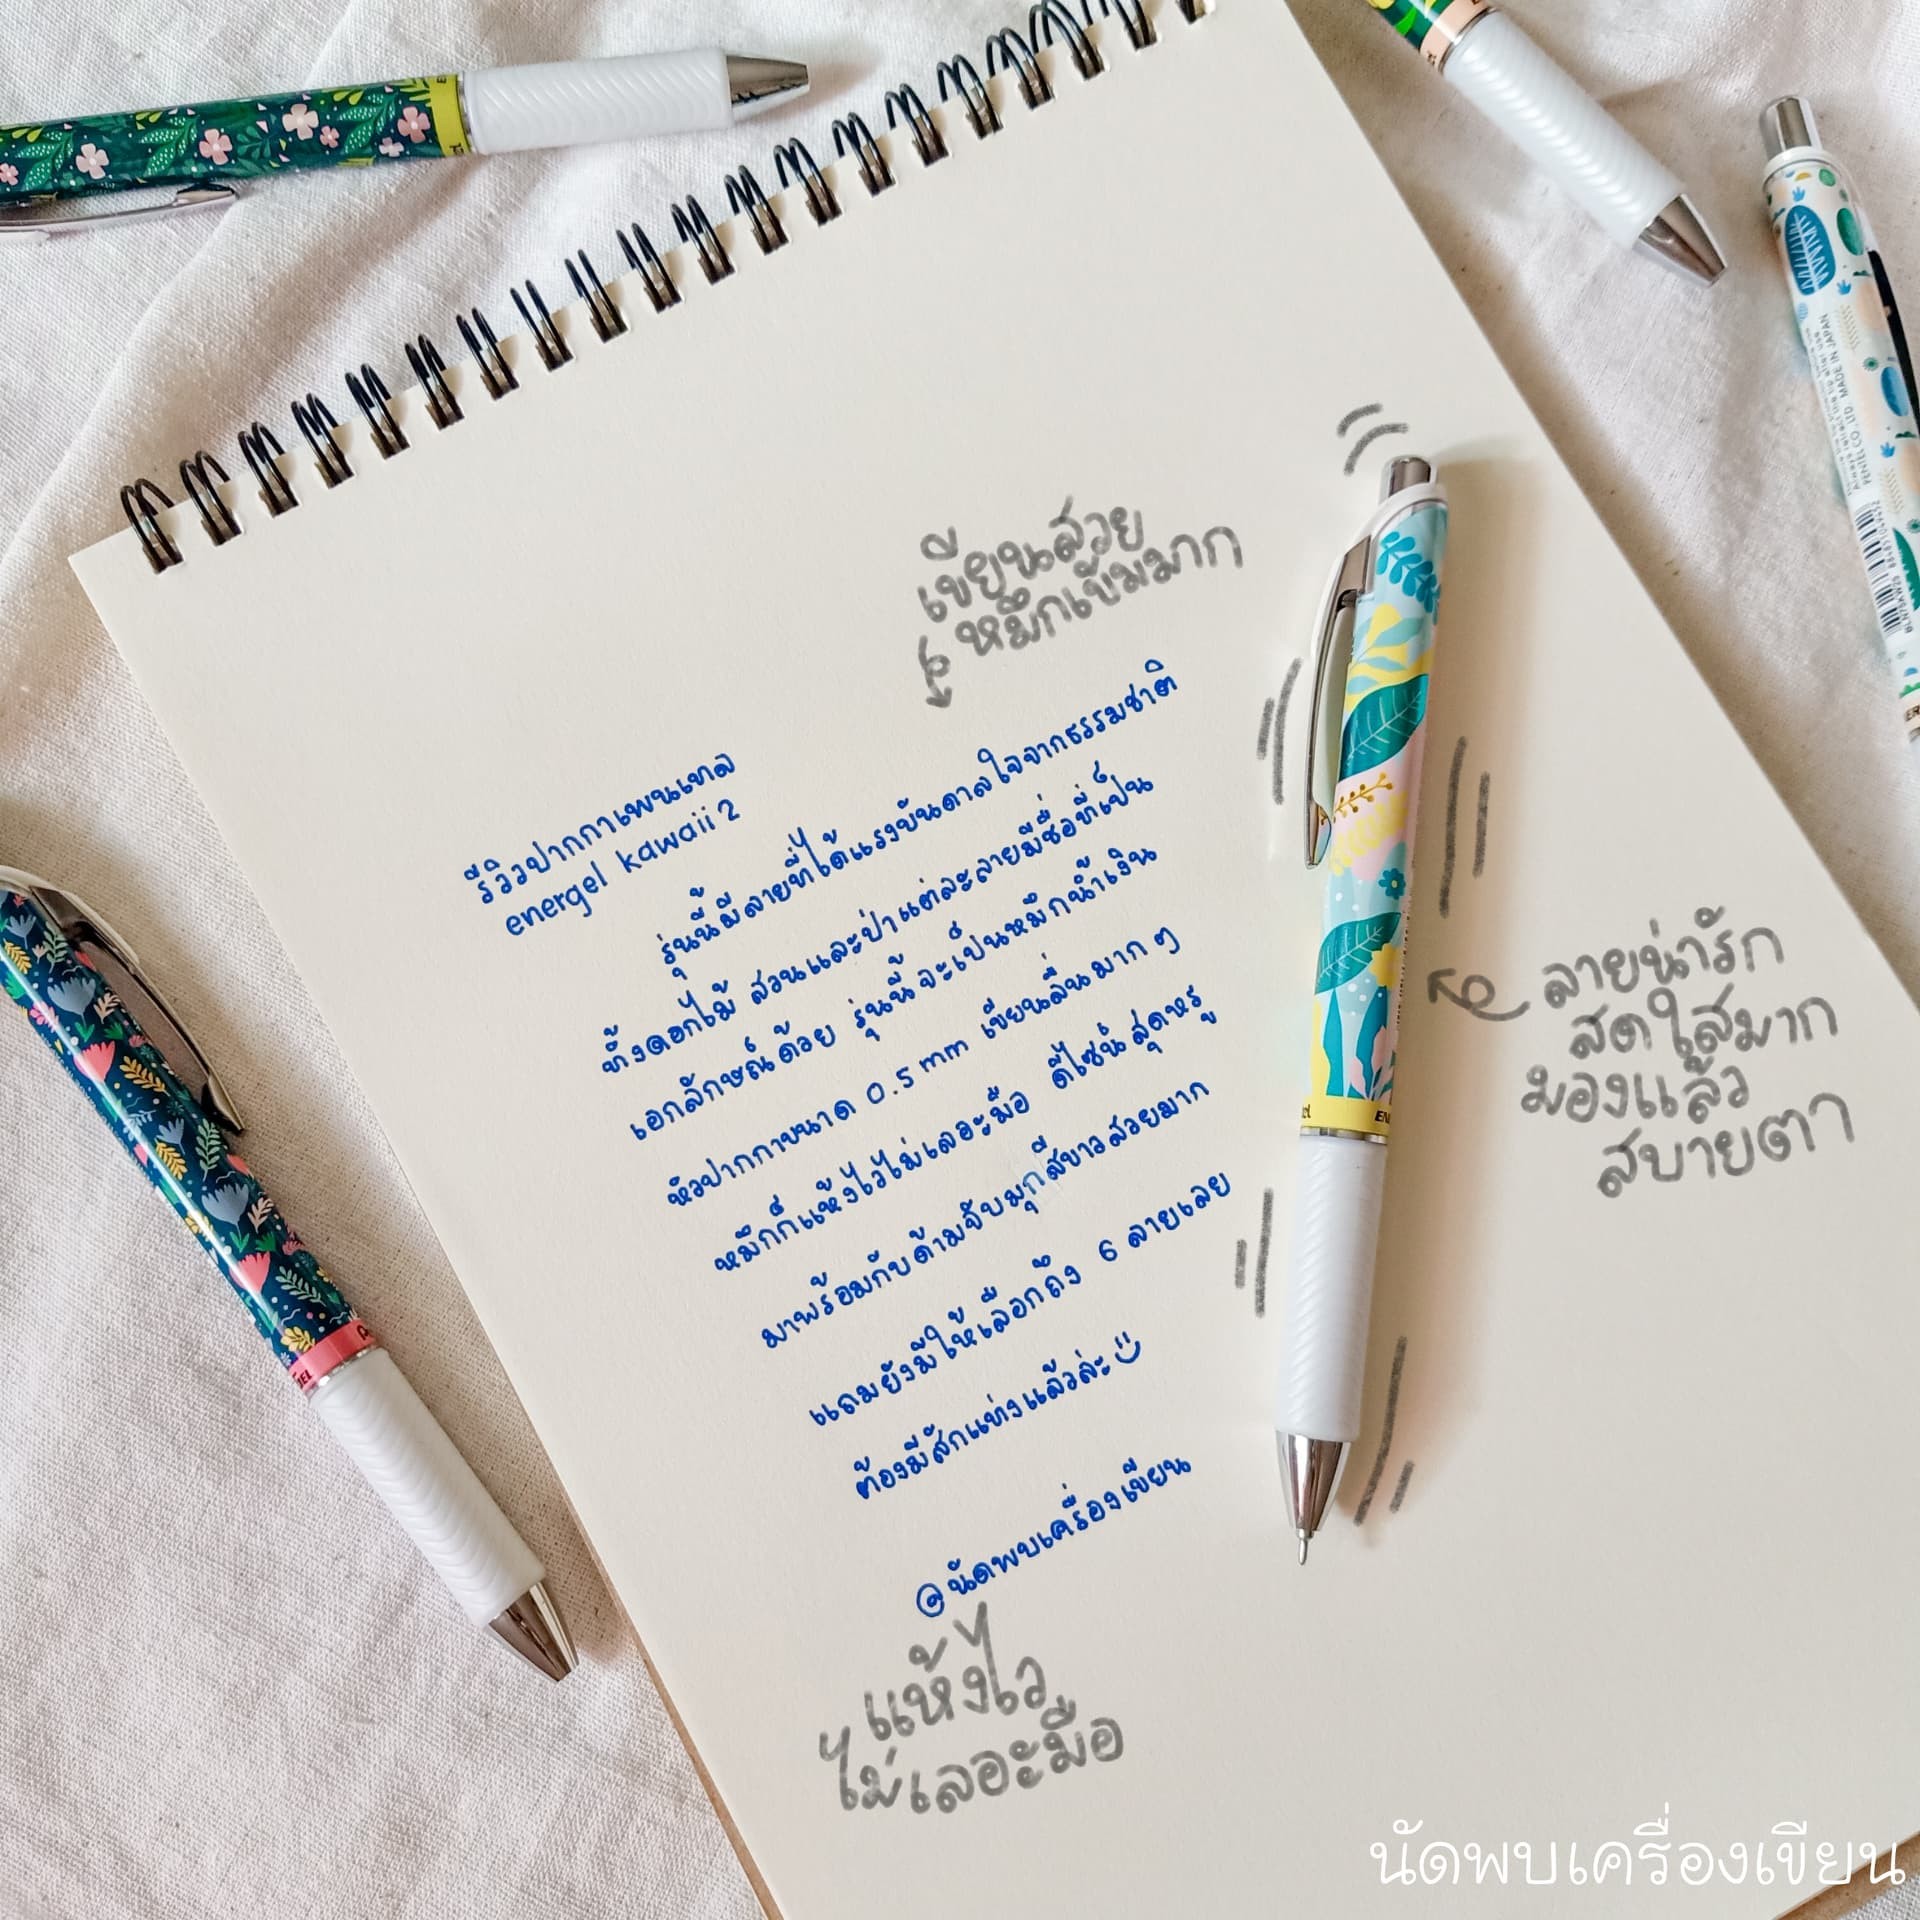 เขียนสวย
หมึกเข้มมาก
รีวิวปากกาเพนเทล
energel kawaii 2
รุ่นนี้มีลายที่ได้แรงบันดาลใจจากธรรมชาติ
ทั้งดอกไม้ สวนและป่า แต่ละลายมีชื่อที่เป็น
เอกลักษณ์ด้วย รุ่นนี้จะเป็นหมึกน้ำเงิน
หัวปากกาขนาด 0.5 mm เขียนลื่นมาก ๆ
หมึกก็แห้งไวไม่เลอะมือ ดีไซน์สุดหรู
มาพร้อมกับด้ามจับมุกสีขาวสวยมาก
แถมยังมีให้เลือกถึง 6 ลายเลย
ต้องมีสักแท่งแล้วล่ะ
@นัดพบเครื่องเขียน
แห้งไว
ไม่เลอะมือ
ลายน่ารัก
สดใสมาก
มองแล้ว
สบายตา
PENTEL CO., LTD. MADE IN JAPAN
นัดพบเครื่องเขียน